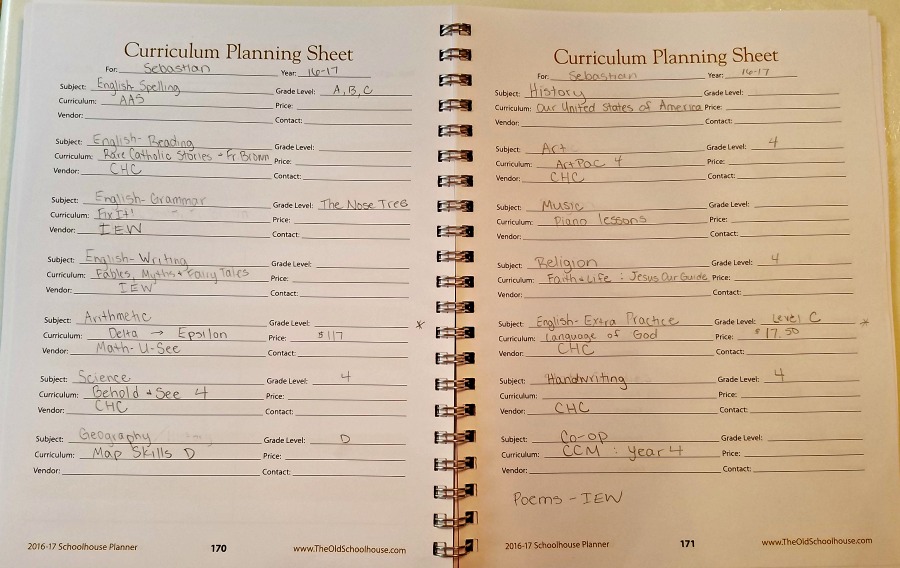 Curriculum Planning Sheet
For: Sebastian Year: 16-17
Subject: English-Spelling Grade Level: A, B, C
Curriculum: AAS Price:
Vendor: Contact:
Subject: English-Reading Grade Level:
Curriculum: Rare Catholic Stories + Fr. Brown Price:
Vendor: CHC Contact:
Subject: English-Grammar Grade Level: The Nose Tree
Curriculum: Fix It! Price:
Vendor: IEW Contact:
Subject: English-Writing Grade Level:
Curriculum: Fables, Myths + Fairy Tales Price:
Vendor: IEW Contact:
Subject: Arithmetic Grade Level: *
Curriculum: Delta → Epsilon Price: $117
Vendor: Math-U-See Contact:
Subject: Science Grade Level: 4
Curriculum: Behold + See 4 Price:
Vendor: CHC Contact:
Subject: Geography Grade Level: D
Curriculum: Map Skills D Price:
Vendor: Contact:
2016-17 Schoolhouse Planner 170 www.TheOldSchoolhouse.com
Curriculum Planning Sheet
For: Sebastian Year: 16-17
Subject: History Grade Level:
Curriculum: Our United States of America Price:
Vendor: Contact:
Subject: Art Grade Level: 4
Curriculum: ArtPac 4 Price:
Vendor: CHC Contact:
Subject: Music Grade Level:
Curriculum: Piano lessons Price:
Vendor: Contact:
Subject: Religion Grade Level: 4
Curriculum: Faith + Life : Jesus Our Guide Price:
Vendor: Contact:
Subject: English-Extra Practice Grade Level: Level C *
Curriculum: Language of God Price: $17.50
Vendor: CHC Contact:
Subject: Handwriting Grade Level: 4
Curriculum: Price:
Vendor: CHC Contact:
Subject: Co-op Grade Level:
Curriculum: CCM : Year 4 Price:
Vendor: Contact:
Poems - IEW
2016-17 Schoolhouse Planner 171 www.TheOldSchoolhouse.com